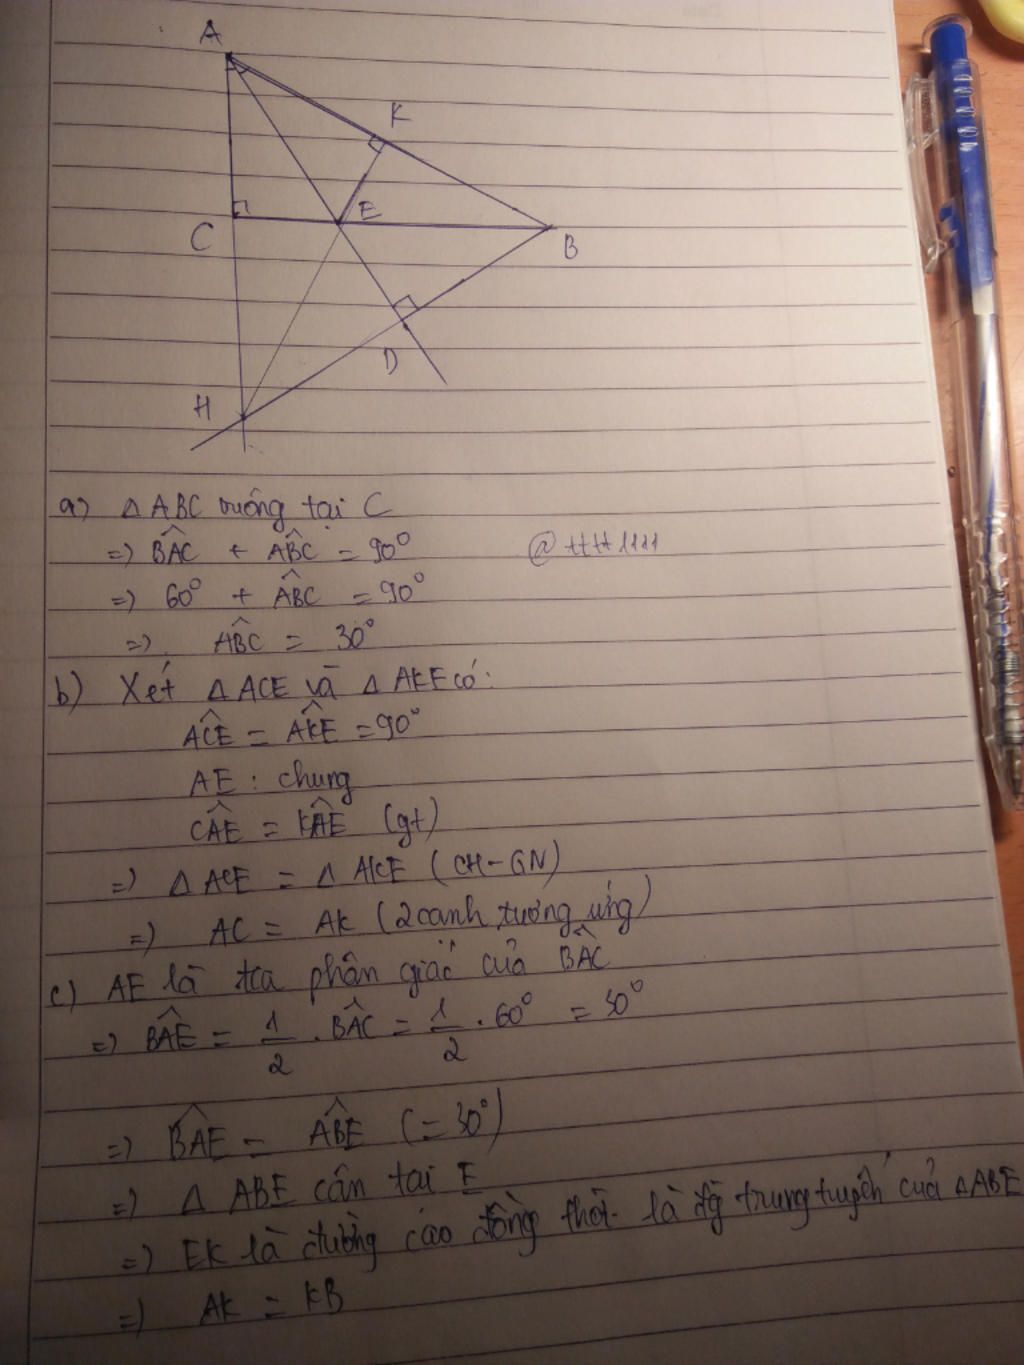 A
K
C
E
B
D
H
a) Δ ABC vuông tại C
=) B̂AC + ÂBC = 90°
@ttt1111
=) 60° + ÂBC = 90°
=) ÂBC = 30°
b) Xét Δ ACE và Δ AKE có:
ÂCE = ÂKE = 90°
AE : chung
ĈAE = K̂AE (gt)
=) Δ ACE = Δ AKE (CH-GN)
=) AC = AK (2 cạnh tương ứng)
c) AE là tia phân giác của B̂AC
=) B̂AE = 1/2 . B̂AC = 1/2 . 60° = 30°
=) B̂AE = ÂBE (= 30°)
=) Δ ABE cân tại E
=) EK là đường cao đồng thời là đg trung tuyến của ΔABE
=) AK = KB